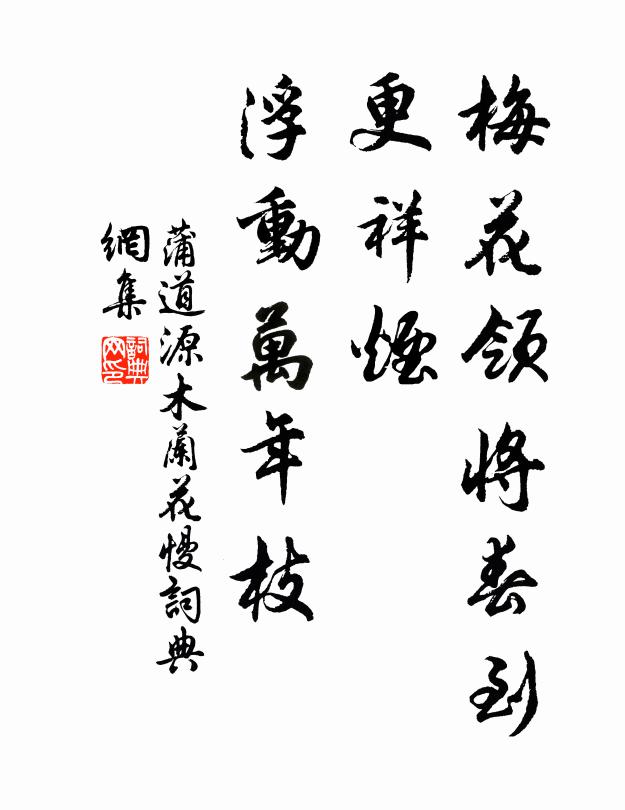 梅花領將春到
更祥煙
浮動萬年枝
蒲道源木蘭花慢詞典
網集
詞典
网印